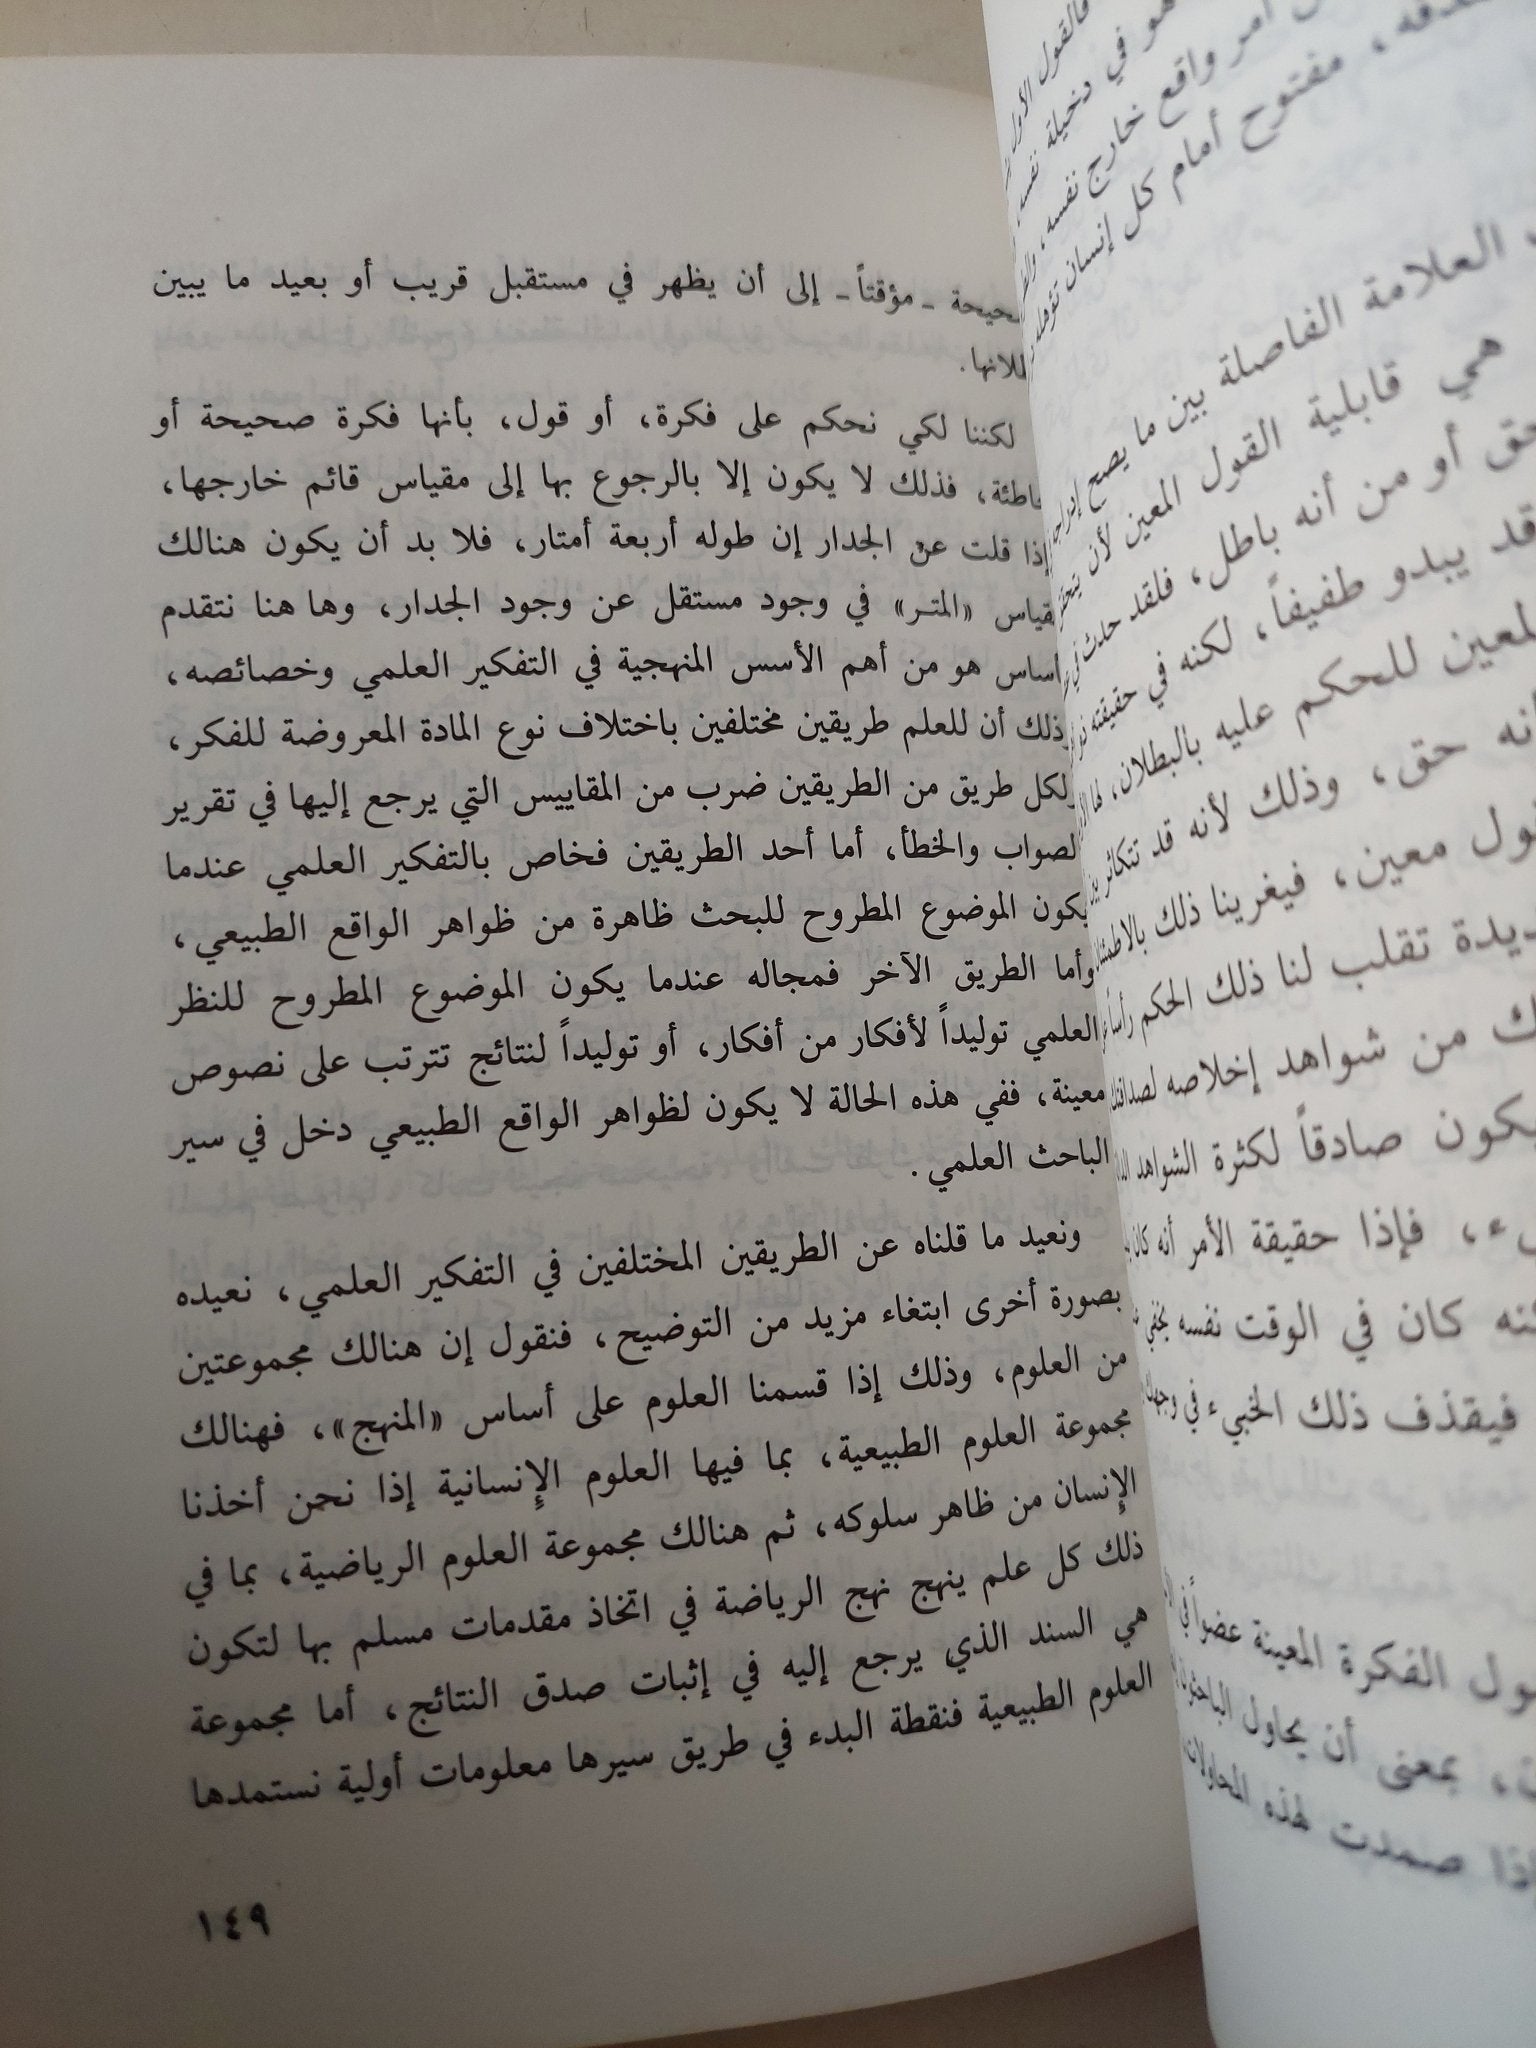 صحيحة ـ مؤقتاً ـ إلى أن يظهر في مستقبل قريب أو بعيد ما يبين
بطلانها.
لكننا لكي نحكم على فكرة، أو قول، بأنها فكرة صحيحة أو
خاطئة، فذلك لا يكون إلا بالرجوع بها إلى مقياس قائم خارجها،
إذا قلت عن الجدار إن طوله أربعة أمتار، فلا بد أن يكون هنالك
مقياس «المتر» في وجود مستقل عن وجود الجدار، وها هنا نتقدم
أساس هو من أهم الأسس المنهجية في التفكير العلمي وخصائصه،
وذلك أن للعلم طريقين مختلفين باختلاف نوع المادة المعروضة للفكر،
ولكل طريق من الطريقين ضرب من المقاييس التي يرجع إليها في تقرير
الصواب والخطأ، أما أحد الطريقين فخاص بالتفكير العلمي عندما
يكون الموضوع المطروح للبحث ظاهرة من ظواهر الواقع الطبيعي،
وأما الطريق الآخر فمجاله عندما يكون الموضوع المطروح للنظر
العلمي توليداً لأفكار من أفكار، أو توليداً لنتائج تترتب على نصوص
معينة، ففي هذه الحالة لا يكون لظواهر الواقع الطبيعي دخل في سير
الباحث العلمي.
ونعيد ما قلناه عن الطريقين المختلفين في التفكير العلمي، نعيده
بصورة أخرى ابتغاء مزيد من التوضيح، فنقول إن هنالك مجموعتين
من العلوم، وذلك إذا قسمنا العلوم على أساس «المنهج»، فهنالك
مجموعة العلوم الطبيعية، بما فيها العلوم الإنسانية إذا نحن أخذنا
الإنسان من ظاهر سلوكه، ثم هنالك مجموعة العلوم الرياضية، بما في
ذلك كل علم ينهج نهج الرياضة في اتخاذ مقدمات مسلم بها لتكون
هي السند الذي يرجع إليه في إثبات صدق النتائج، أما مجموعة
العلوم الطبيعية فنقطة البدء في طريق سيرها معلومات أولية نستمدها
١٤٩
فالقول الأول
هو في دخيلة نفسه،
أمر واقع خارج نفسه،
مفتوح أمام كل إنسان تؤهله
العلامة الفاصلة بين ما يصح
هي قابلية القول المعين لأن
حق أو من أنه باطل، فلقد حدث في
قد يبدو طفيفاً، لكنه في حقيقته
المعين للحكم عليه بالبطلان،
أنه حق، وذلك لأنه قد تتكاثر
قول معين، فيغرينا ذلك
جديدة تقلب لنا ذلك الحكم رأساً
من شواهد إخلاصه
يكون صادقاً لكثرة الشواهد
فإذا حقيقة الأمر أنه كان
كان في الوقت نفسه يخفي
فيقذف ذلك الخبيء في وجهك
الفكرة المعينة عضواً في
بمعنى أن يحاول الباحثون
إذا صمدت لهذه المحاولات